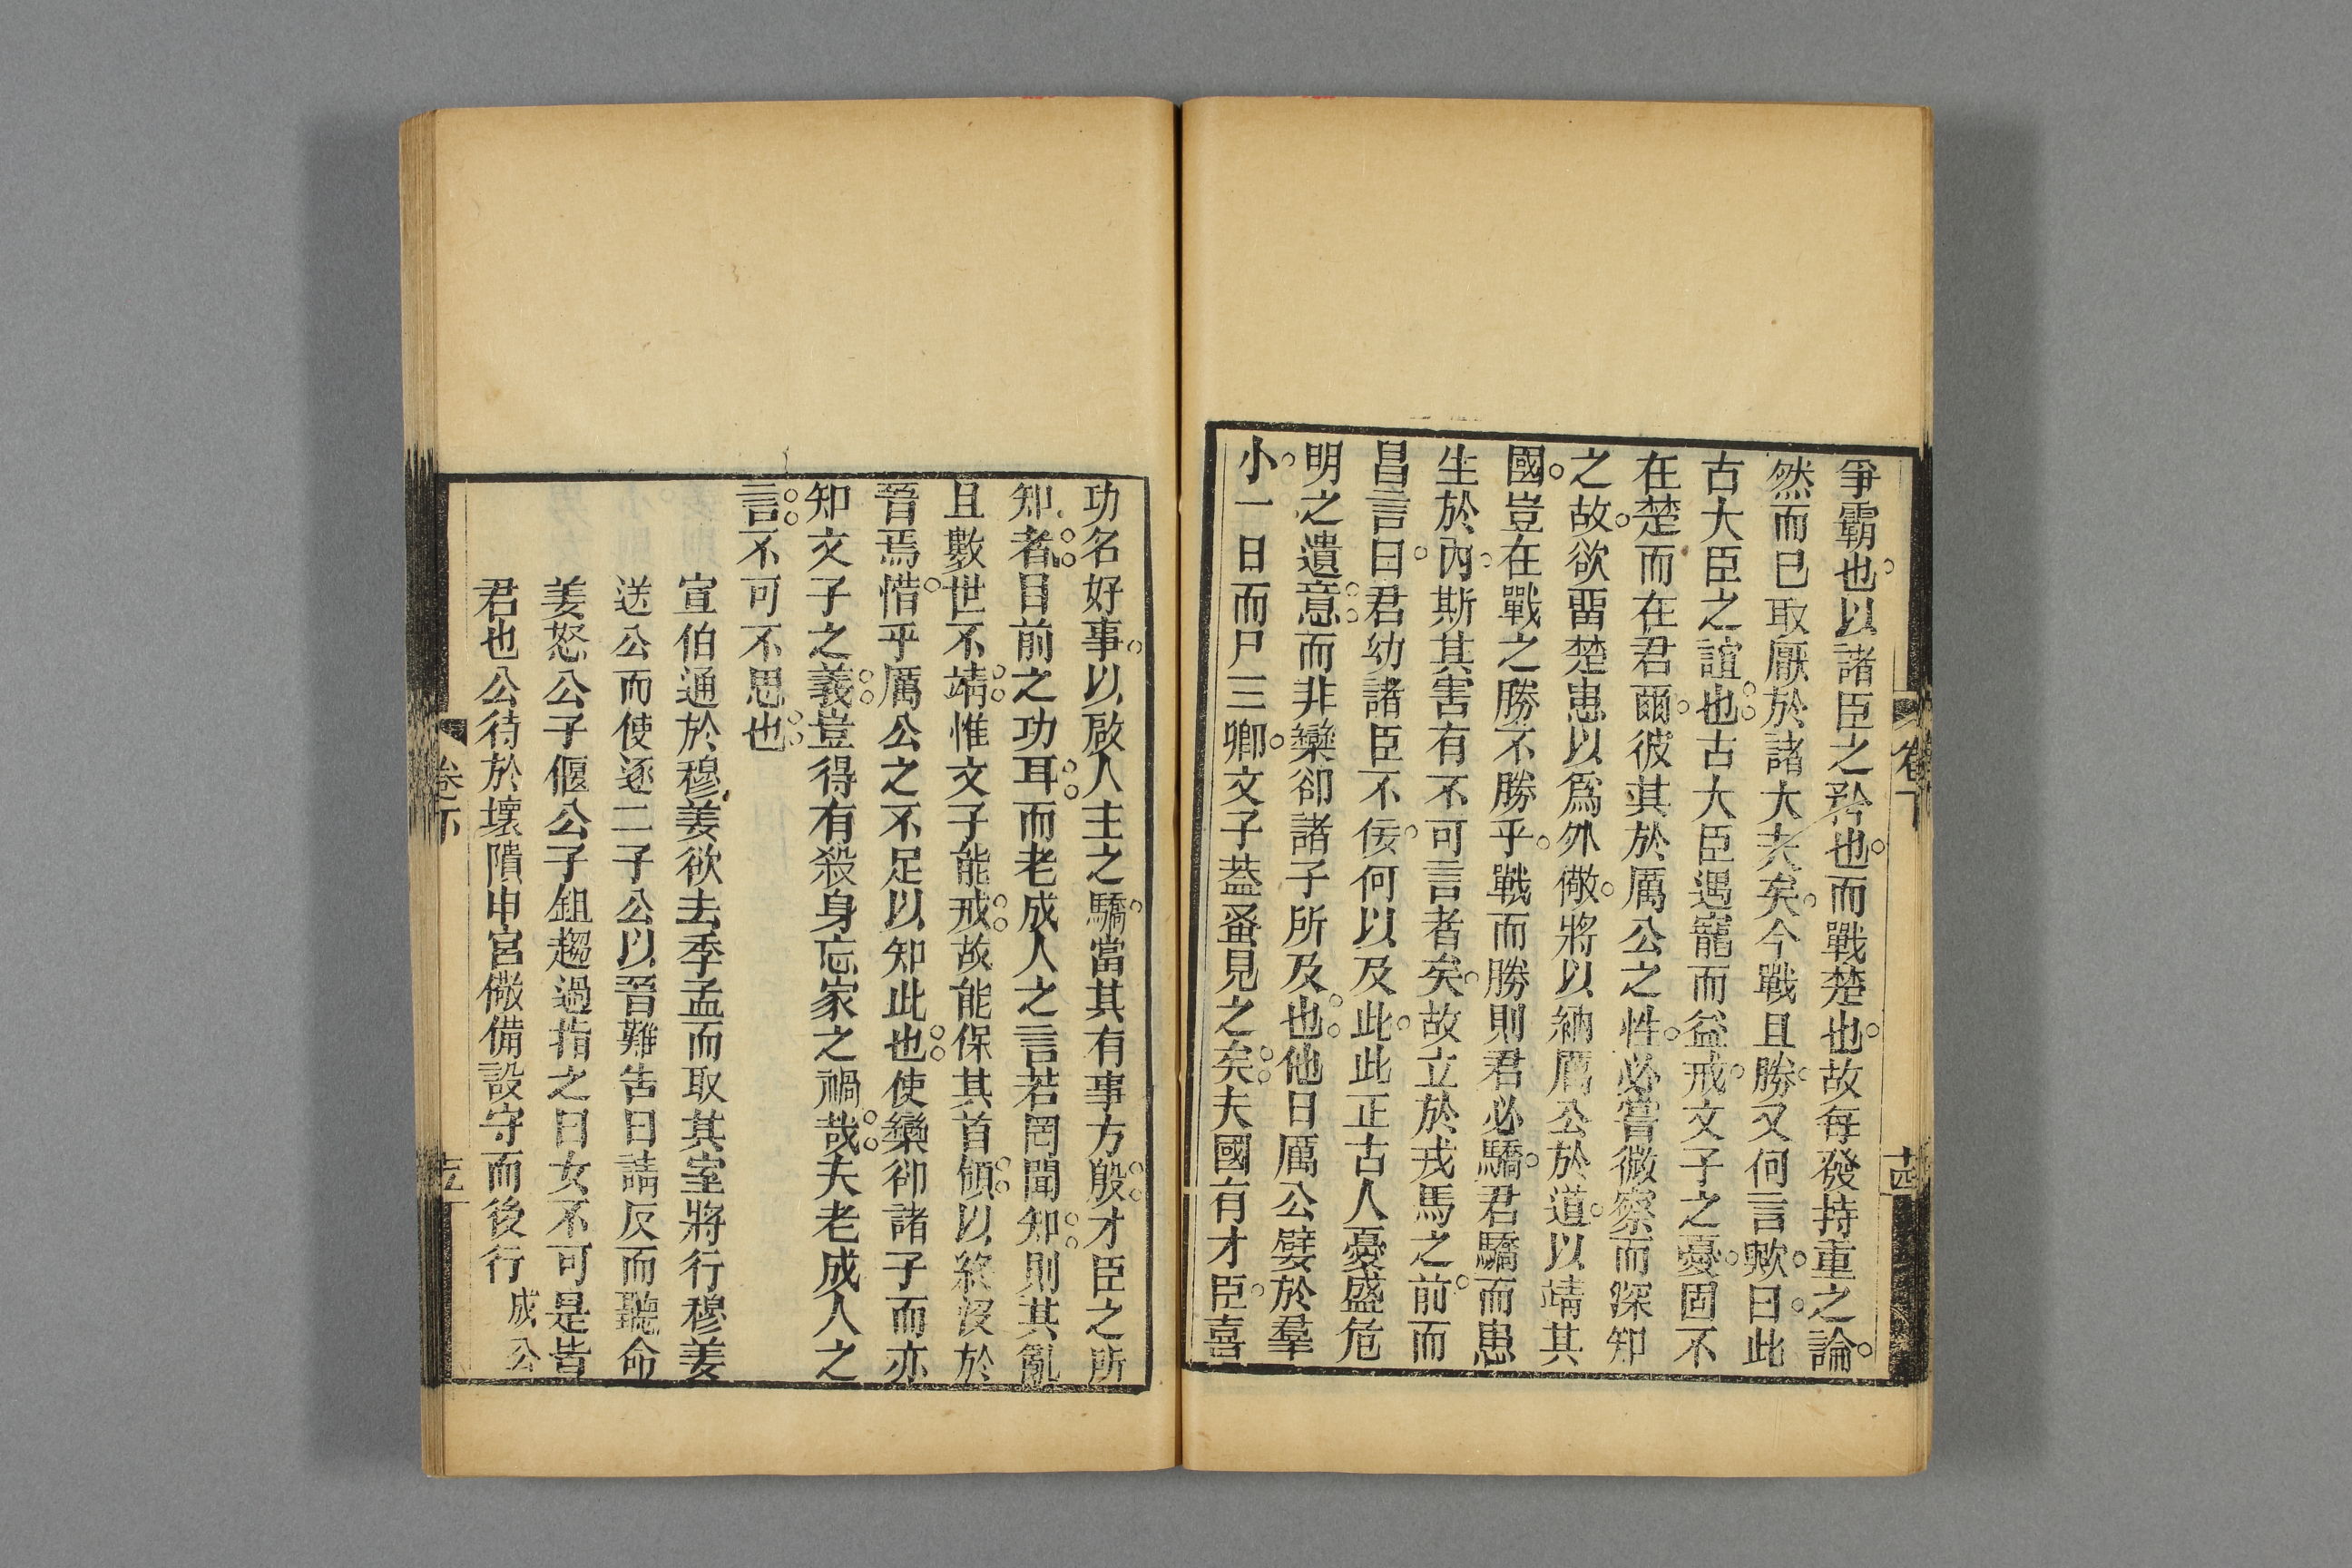 爭霸也以諸臣之矜也而戰楚也故每發持重之論
然而已取厭於諸大夫矣今戰且勝又何言歟曰此
古大臣之誼也古大臣遇寵而益戒文子之憂固不
在楚而在君爾彼其於厲公之性必嘗微察而深知
之故欲畱楚患以爲外儆將以納厲公於道以靖其
國豈在戰之勝不勝乎戰而勝則君必驕君驕而患
生於內斯其害有不可言者矣故立於戎馬之前而
昌言曰君幼諸臣不佞何以及此此正古人憂盛危
明之遺意而非欒卻諸子所及也他日厲公嬖於羣
小一日而尸三卿文子葢蚤見之矣夫國有才臣喜
卷下
十四
功名好事以啟人主之驕當其有事方殷才臣之所
知者目前之功耳而老成人之言若罔聞知則其亂
且數世不靖惟文子能戒故能保其首領以終沒於
晉焉惜乎厲公之不足以知此也使欒卻諸子而亦
知文子之義豈得有殺身忘家之禍哉夫老成人之
言不可不思也
宣伯通於穆姜欲去季孟而取其室將行穆姜
送公而使逐二子公以晉難告曰請反而聽命
姜怒公子偃公子鉏趨過指之曰女不可是皆
君也公待於壞隤申宮儆備設守而後行 成公
卷下